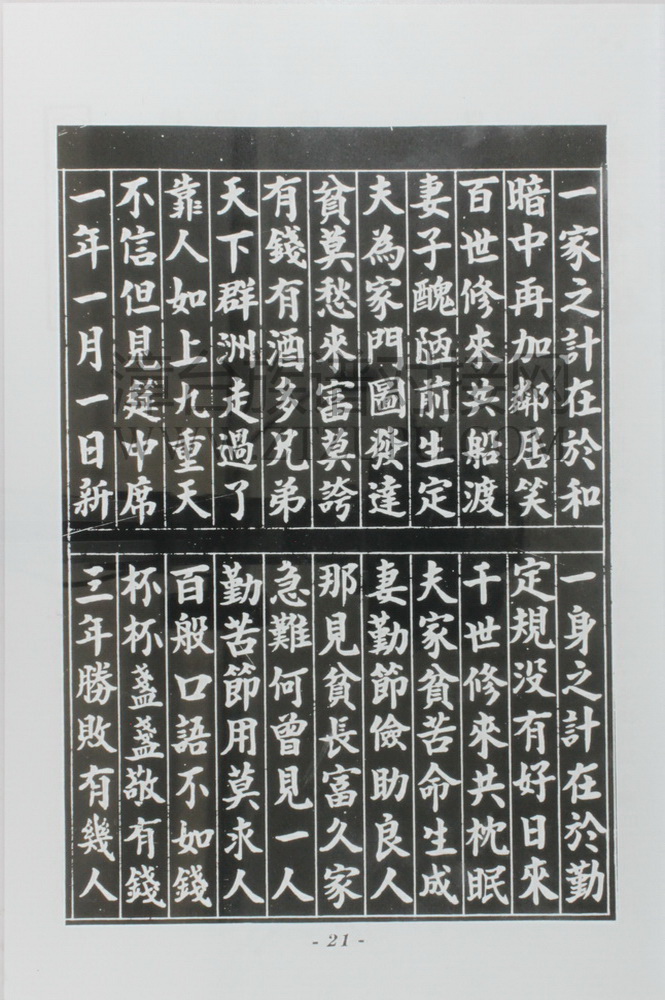 一家之計在於和
暗中再加鄰居笑
百世修來共船渡
妻子醜陋前生定
夫為家門圖發達
貧莫愁來富莫誇
有錢有酒多兄弟
天下群洲走過了
靠人如上九重天
不信但見筵中席
一年一月一日新
一身之計在於勤
定規没有好日來
千世修來共枕眠
夫家貧苦命生成
妻勤節儉助良人
那見貧長富久家
急難何曾見一人
勤苦節用莫求人
百般口語不如錢
杯杯盞盞敬有錢
三年勝敗有幾人
- 21 -